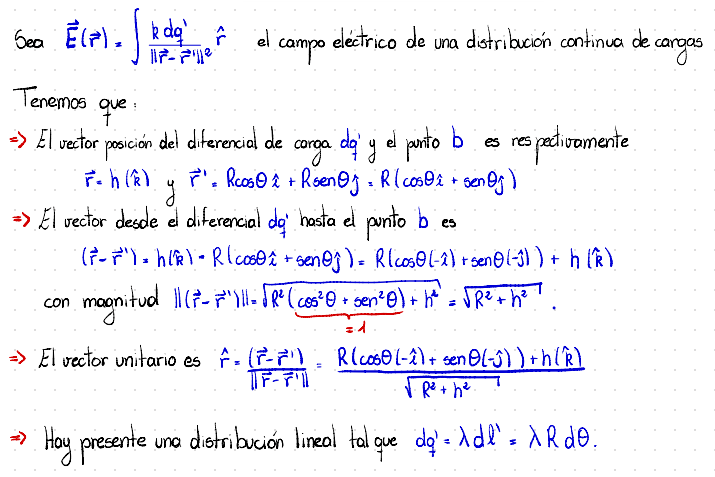 Sea E⃗(r⃗) = ∫ k dq' / ||r⃗-r⃗'||² r̂ el campo eléctrico de una distribución continua de cargas
Tenemos que:
=> El vector posición del diferencial de carga dq' y el punto b es respectivamente
r⃗ = h(k̂) y r⃗' = Rcosθî + Rsenθĵ = R(cosθî + senθĵ)
=> El vector desde el diferencial dq' hasta el punto b es
(r⃗-r⃗') = h(k̂) - R(cosθî + senθĵ) = R(cosθ(-î) + senθ(-ĵ)) + h(k̂)
con magnitud ||(r⃗-r⃗')|| = √(R²(cos²θ + sen²θ) + h²) = √(R² + h²).
= 1
=> El vector unitario es r̂ = (r⃗-r⃗') / ||r⃗-r⃗'|| = R(cosθ(-î) + senθ(-ĵ)) + h(k̂) / √(R² + h²)
=> Hay presente una distribución lineal tal que dq' = λdl' = λRdθ.